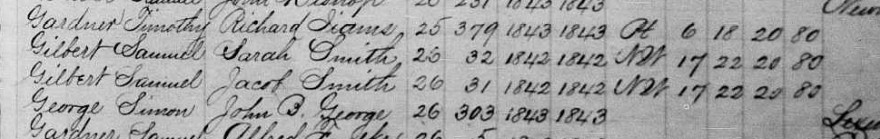 Gardner Timothy Richard Iiams 25 379 1843 1843 Pt 6 18 20 80
Gilbert Samuel Sarah Smith 26 32 1842 1842 NW 17 22 20 80
Gilbert Samuel Jacob Smith 26 31 1842 1842 NW 17 22 20 80
George Simon John B. George 26 303 1843 1843
Gardner Samuel Alfred